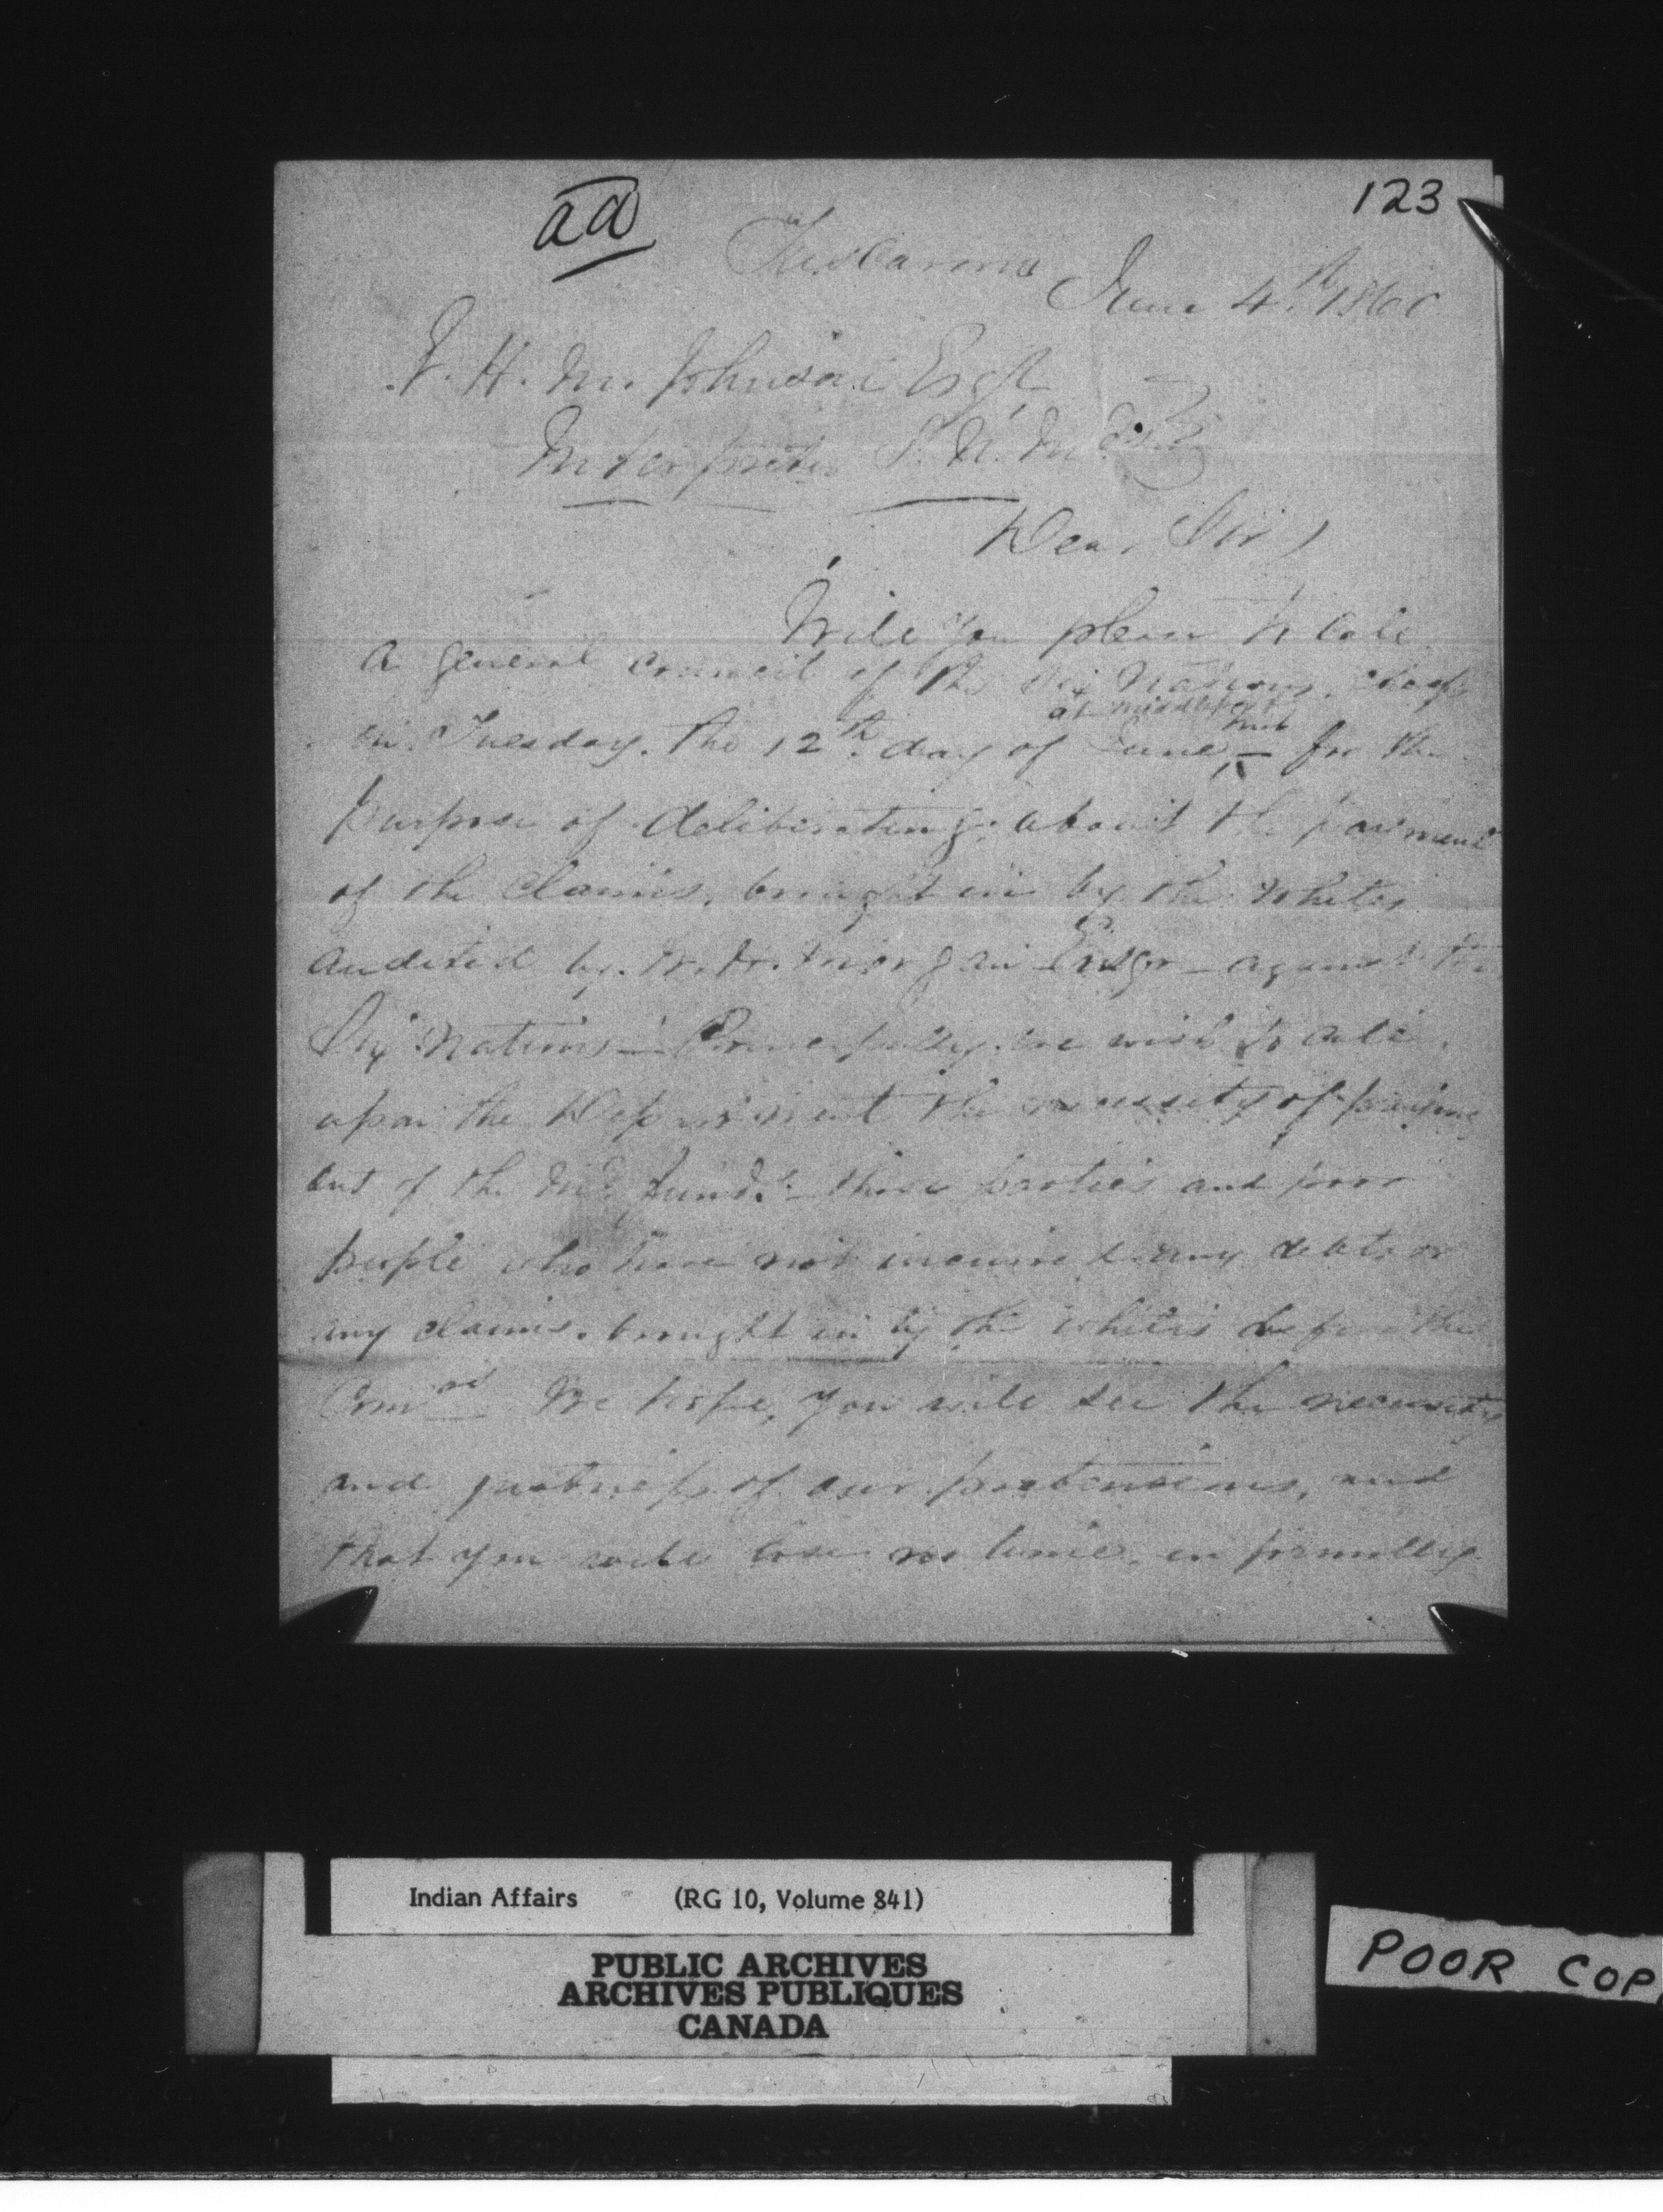 aa
123
Tuscarora
June 4th 1860
G. H. M. Johnson Esqr
Interpreter S. N. Ind.
Dear Sir)
Will you please to Call
a general council of the Six Nations. Chiefs
at middleport
on Tuesday. the 12th. day of June, inst for the
purpose of deliberating. about the paiment
of the claims, brought in by the whites
audited by. Morgan Ensgr - against the
Six Nations — we wish to
upon the Department the necessity of paying
out of the Ind fund. those parties and poor
people who have not incurred any debts or
any claims. brought in by the whites before the
Com We hope, you will see the necessity
and justness of our pretensions, and
that you will lose no time. in formally
Indian Affairs (RG 10, Volume 841)
PUBLIC ARCHIVES
ARCHIVES PUBLIQUES
CANADA
POOR COP